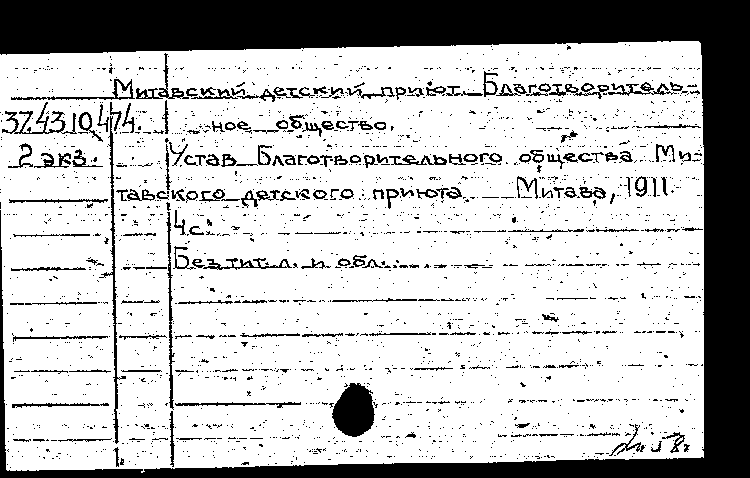 Митавский детский приют. Благотворитель-
37.43.10.474. ное общество.
2 экз. Устав Благотворительного общества Ми-
тавского детского приюта. Митава, 1911.
4с.
Без тит. л. и обл.